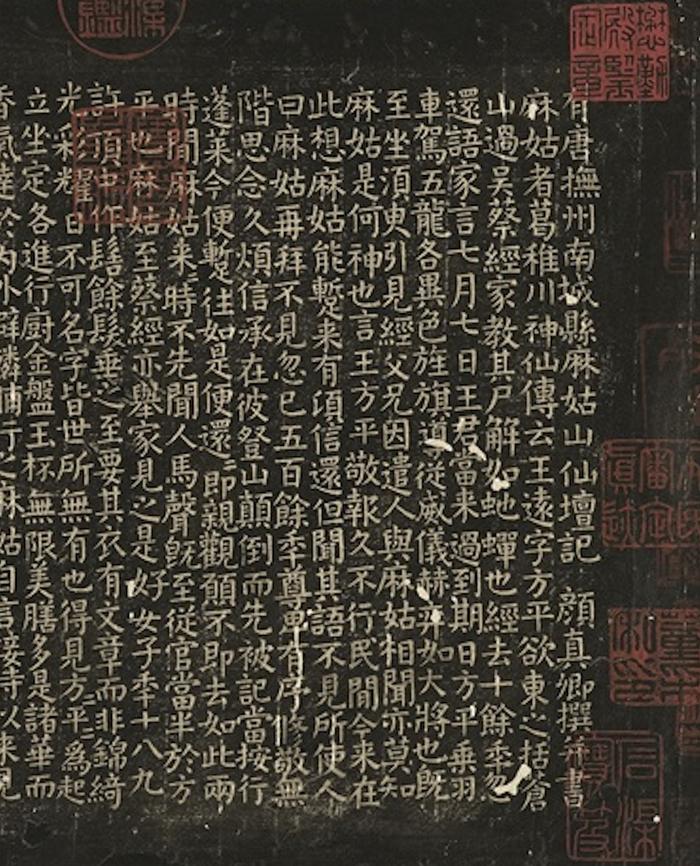 有唐撫州南城縣麻姑山仙壇記 顏真卿撰并書
麻姑者葛稚川神仙傳云王遠字方平欲東之括蒼
山過吳蔡經家教其尸解如虵蟬也經去十餘秊忽
還語家言七月七日王君當来過到期日方平乗羽
車駕五龍各異色旌旗導從威儀赫弈如大將也既
至坐湏臾引見經父兄因遣人與麻姑相聞亦莫知
麻姑是何神也言王方平敬報久不行民間今来在
此想麻姑能蹔来有頃信還但聞其語不見所使人
曰麻姑再拜不見忽已五百餘秊尊卑有序修敬無
階思念久煩信承在彼登山顛倒而先被記當按行
蓬莱今便蹔往如是便還〻即親觀願不即去如此兩
時間麻姑来時不先聞人馬聲既至從官當半於方
平也麻姑至蔡經亦舉家見之是好女子秊十八九
許頂中作髻餘髮垂之至要其衣有文章而非錦綺
光彩耀日不可名字皆世所無有也得見方〻平〻為起
立坐定各進行廚金盤玉杯無限美膳多是諸華而
香氣達於內外擗麟脯行之麻姑自言接待以来見